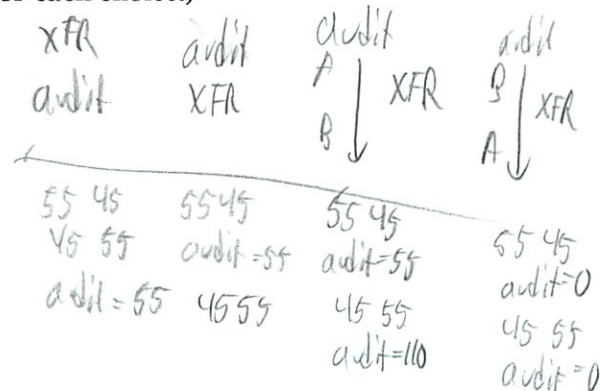 XFR
audit
audit
XFR
audit
A
B
XFR
audit
B
A
XFR
55 45
45 55
audit = 55
55 45
audit = 55
45 55
55 45
audit = 55
45 55
audit = 110
55 45
audit = 0
45 55
audit = 0